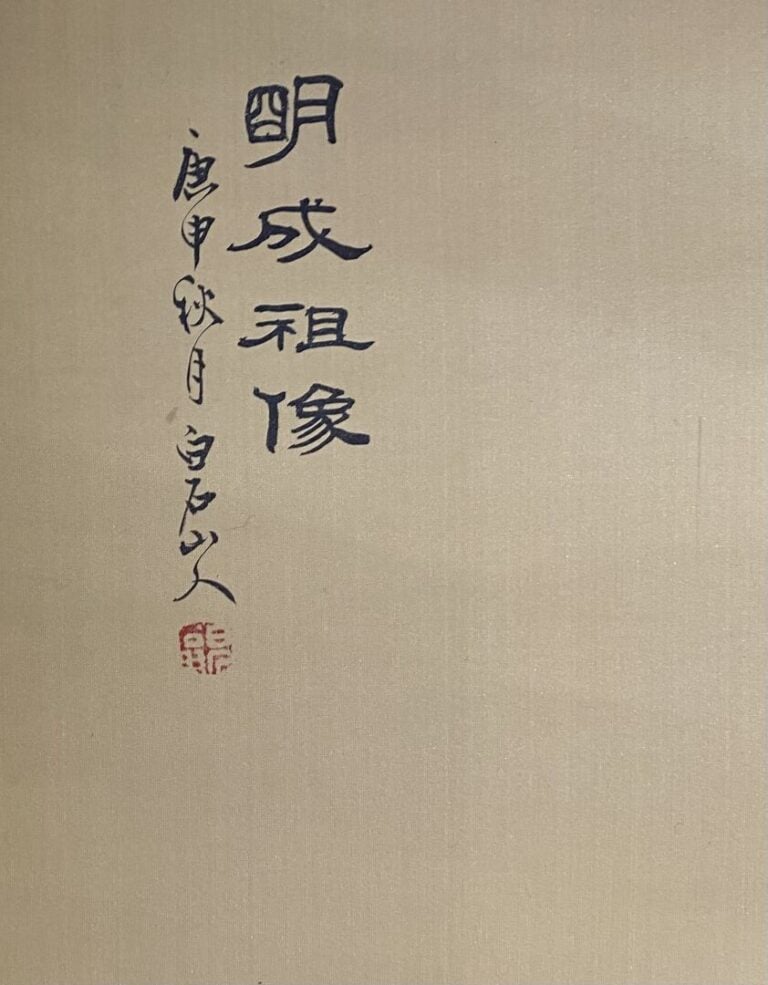 明成祖像
庚申秋月白石山人